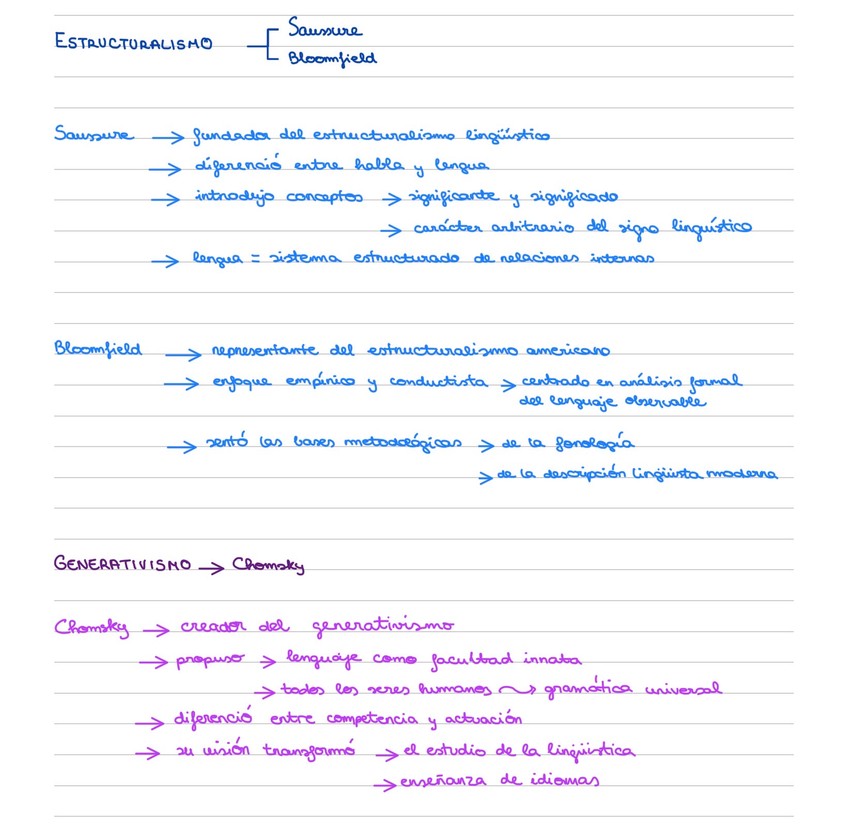 ESTRUCTURALISMO
Saussure
Bloomfield
Saussure → fundador del estructuralismo lingüístico
→ diferenció entre habla y lengua
→ introdujo conceptos → significante y significado
→ carácter arbitrario del signo lingüístico
→ lengua = sistema estructurado de relaciones internas
Bloomfield → representante del estructuralismo americano
→ enfoque empírico y conductista → centrado en análisis formal
del lenguaje observable
→ sentó las bases metodológicas → de la fonología
→ de la descripción lingüista moderna
GENERATIVISMO → Chomsky
Chomsky → creador del generativismo
→ propuso → lenguaje como facultad innata
→ todos los seres humanos ⤳ gramática universal
→ diferenció entre competencia y actuación
→ su visión transformó → el estudio de la lingüística
→ enseñanza de idiomas